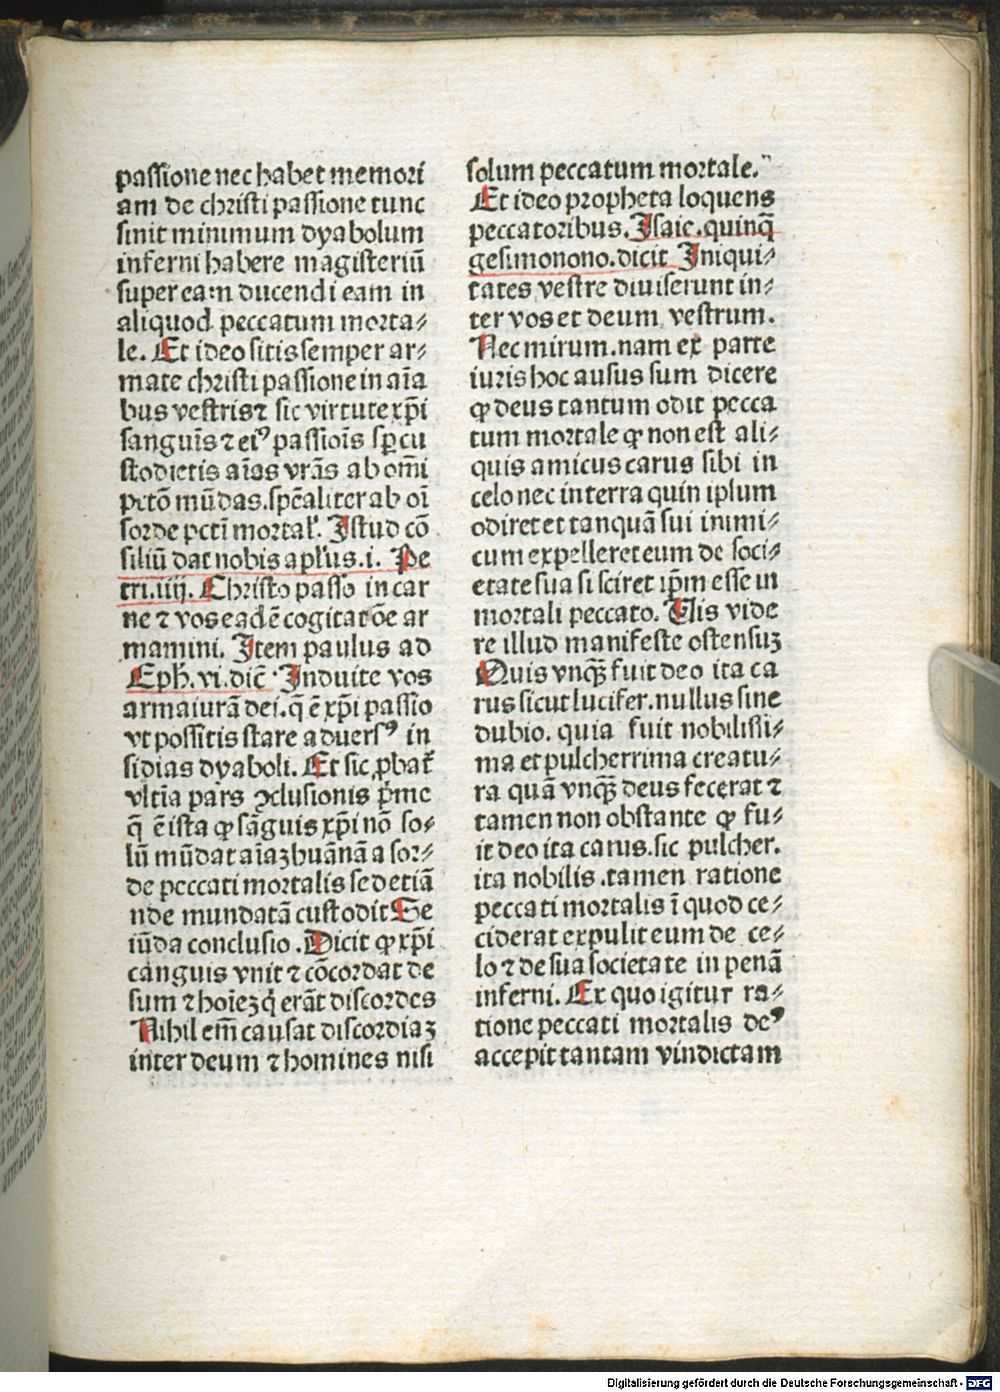 passione nec habet memori
am de christi passione tunc
sinit minimum dyabolum
inferni habere magisteriū
super eam ducendi eam in
aliquod peccatum morta⸗
le. Et ideo sitis semper ar⸗
mate christi passione in aīa
bus vestris ⁊ sic virtute xp̄i
sanguīs ⁊ eiꝰ passiōis sp̄ cu
stodietis aīas vrās ab om̄i
pctō mūdas. spēaliter ab oī
sorde pctī mortaƚ. Istud cō
siliū dat nobis aplꝰus .i. Pe
tri .iiij. Christo passo in car
ne ⁊ vos eadē cogitatōe ar
mamini. Item paulus ad
Eph. vi. dic̄ . Induite vos
armaturā dei. q̄ ē xp̄i passio
vt possitis stare aduersꝰ in
sidias dyaboli. Et sic ꝓbat̄
vltīa pars ꝯclusionis p̄me
q̄ ē ista ꝙ sāguis xp̄i nō so⸗
lū mūdat aīaꝫ huānā a sor⸗
de peccati mortalis sed etiā
inde mundatā custodit Se
cūda conclusio . Dicit ꝙ xp̄i
sanguis vnit ⁊ cōcordat de
um ⁊ hoīeꝫ q̇ erāt discordes
Nihil em̄ causat discordiaꝫ
inter deum ⁊ homines nisi
solum peccatum mortale.
Et ideo propheta loquens
peccatoribus. Isaie .quinq̄
gesimonono. dicit Iniqui⸗
tates vestre diuiserunt in⸗
ter vos et deum vestrum.
Nec mirum. nam ex parte
iuris hoc ausus sum dicere
ꝙ deus tantum odit pecca
tum mortale ꝙ non est ali⸗
quis amicus carus sibi in
celo nec in terra quin ipsum
odiret et tanquā sui inimi⸗
cum expelleret eum de soci⸗
etate sua si sciret ip̄m esse in
mortali peccato. Vis vide
re illud manifeste ostensuꝫ
Quis vnqꝫ fuit deo ita ca
rus sicut lucifer. nullus sine
dubio. quia fuit nobilissi⸗
ma et pulcherrima creatu⸗
ra quā vnqꝫ deus fecerat ⁊
tamen non obstante ꝙ fu⸗
it deo ita carus. sic pulcher.
ita nobilis .tamen ratione
peccati mortalis ī quod ce⸗
ciderat expulit eum de ce⸗
lo ⁊ de sua societate in penā
inferni. Ex quo igitur ra⸗
tione peccati mortalis deꝰ
accepit tantam vindictam
Digitalisierung gefördert durch die Deutsche Forschungsgemeinschaft - DFG